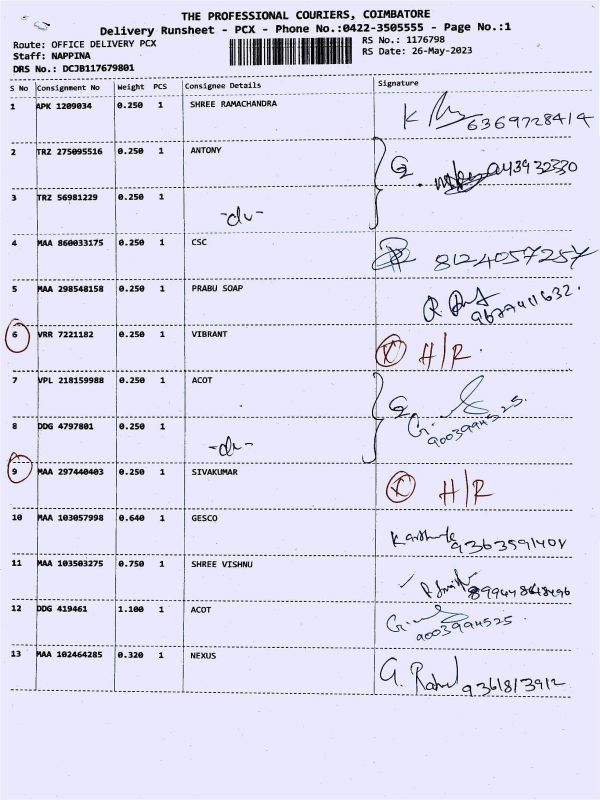 THE PROFESSIONAL COURIERS, COIMBATORE
Delivery Runsheet - PCX - Phone No.:0422-3505555 - Page No.:1
Route: OFFICE DELIVERY PCX RS No.: 1176798
Staff: NAPPINA RS Date: 26-May-2023
DRS No.: DCJB117679801
S No Consignment No Weight PCS Consignee Details Signature
1 APK 1209034 0.250 1 SHREE RAMACHANDRA 6369728414
2 TRZ 275095516 0.250 1 ANTONY
3 TRZ 56981229 0.250 1 -do-
4 MAA 860033175 0.250 1 CSC 8124057257
5 MAA 298548158 0.250 1 PRABU SOAP
6 VRR 7221182 0.250 1 VIBRANT H/R.
7 VPL 218159988 0.250 1 ACOT 9003994525.
8 DDG 4797801 0.250 1 -do-
9 MAA 297440403 0.250 1 SIVAKUMAR H/R
10 MAA 103057998 0.640 1 GESCO
11 MAA 103503275 0.750 1 SHREE VISHNU
12 DDG 419461 1.100 1 ACOT 9003994525.
13 MAA 102464285 0.320 1 NEXUS 9361813912